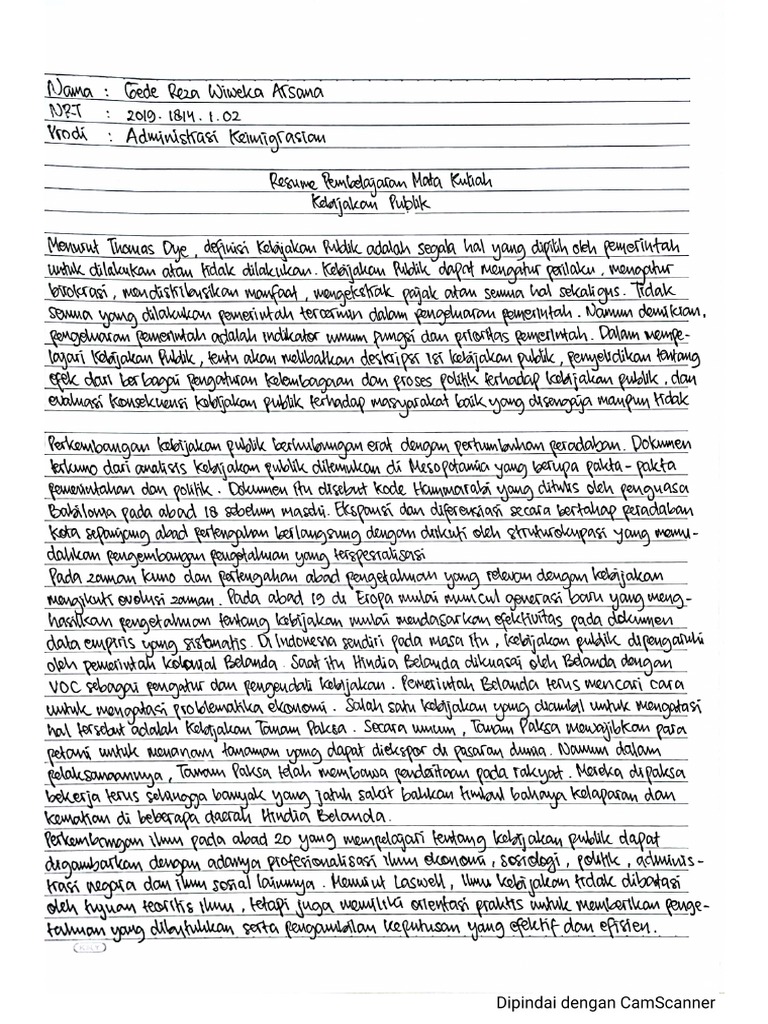 Nama : Gede Reza Wiweka Arsana
NPT : 2019.1814.1.02
Prodi : Administrasi Keimigrasian
Resume Pembelajaran Mata Kuliah
Kebijakan Publik
Menurut Thomas Dye, definisi Kebijakan Publik adalah segala hal yang dipilih oleh pemerintah
untuk dilakukan atau tidak dilakukan. Kebijakan Publik dapat mengatur perilaku, mengatur
birokrasi, mendistribusikan manfaat, mengekstrak pajak atau semua hal sekaligus. Tidak
semua yang dilakukan pemerintah tercermin dalam pengeluaran pemerintah. Namun demikian,
pengeluaran pemerintah adalah indikator umum fungsi dan prioritas pemerintah. Dalam mempe-
lajari Kebijakan Publik, tentu akan melibatkan deskripsi isi kebijakan publik, penyelidikan tentang
efek dari berbagai pengaturan kelembagaan dan proses politik terhadap kebijakan publik, dan
evaluasi konsekuensi kebijakan publik terhadap masyarakat baik yang disengaja maupun tidak
Perkembangan kebijakan publik berhubungan erat dengan pertumbuhan peradaban. Dokumen
terkuno dari analisis kebijakan publik ditemukan di Mesopotamia yang berupa pakta-pakta
pemerintahan dan politik. Dokumen itu disebut kode Hammarabi yang ditulis oleh penguasa
Babilonia pada abad 18 sebelum masehi. Ekspansi dan diferensiasi secara bertahap peradaban
kota sepanjang abad pertengahan berlangsung dengan diikuti oleh strukturokupasi yang memu-
dahkan pengembangan pengetahuan yang terspesialisasi
Pada zaman kuno dan pertengahan abad pengetahuan yang relevan dengan kebijakan
mengikuti evolusi zaman. Pada abad 19 di Eropa mulai muncul generasi baru yang meng-
hasilkan pengetahuan tentang kebijakan mulai mendasarkan efektivitas pada dokumen
data empiris yang sistematis. Di Indonesia sendiri pada masa itu, kebijakan publik dipengaruhi
oleh pemerintah Kolonial Belanda. Saat itu Hindia Belanda dikuasai oleh Belanda dengan
VOC sebagai pengatur dan pengendali kebijakan. Pemerintah Belanda terus mencari cara
untuk mengatasi problematika ekonomi. Salah satu kebijakan yang diambil untuk mengatasi
hal tersebut adalah Kebijakan Tanam Paksa. Secara umum, Tanam Paksa mewajibkan para
petani untuk menanam tanaman yang dapat diekspor di pasaran dunia. Namun dalam
pelaksanaannya, Tanam Paksa telah membawa penderitaan pada rakyat. Mereka dipaksa
bekerja terus sehingga banyak yang jatuh sakit bahkan timbul bahaya kelaparan dan
kematian di beberapa daerah Hindia Belanda.
Perkembangan ilmu pada abad 20 yang mempelajari tentang kebijakan publik dapat
digambarkan dengan adanya profesionalisasi ilmu ekonomi, sosiologi, politik, adminis-
trasi negara dan ilmu sosial lainnya. Menurut Laswell, ilmu kebijakan tidak dibatasi
oleh tujuan teoritis ilmu, tetapi juga memiliki orientasi praktis untuk memberikan penge-
tahuan yang dibutuhkan serta pengambilan keputusan yang efektif dan efisien.
KIKY
Dipindai dengan CamScanner